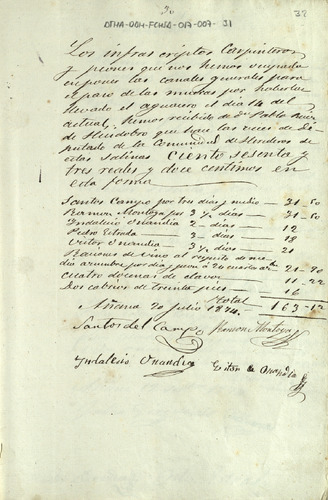 30
32
OTHA-DDH-FCH/A-017-007-31
Los infras criptos Carpinteros
y peones que nos hemos
en poner las canales generales para
el paro de las mueras por haberlas
llevado el aguacero el dia 14 del
actual, hemos recibido de Dn. Pablo Ruiz
de Huidobro que hace las veces de Di
putado de la Comunidad de Herederos de
estas Salinas Ciento sesenta y
tres reales y doce centimos en
esta forma
Santos Campo por tres dias y medio — 31-50
Ramon Montoya por 3 ½ dias — 31-50
Yndalecio Onandia 2 dias — 12
Pedro Estrada — 3 — dias — 18
Victor Onandia — 3 ½ dias — 21
Raciones de vino al respecto de me
dia azumbre por dia y peon á 20 cuartos 21-90
cuatro docenas de clavos — 11-22
Dos cabrios de treinta pies — 16
Total 163-12
Añana 20 julio 1874.
Santos del Campo Ramon Montoya
Yndalecio Onandia Vitor de Onandia